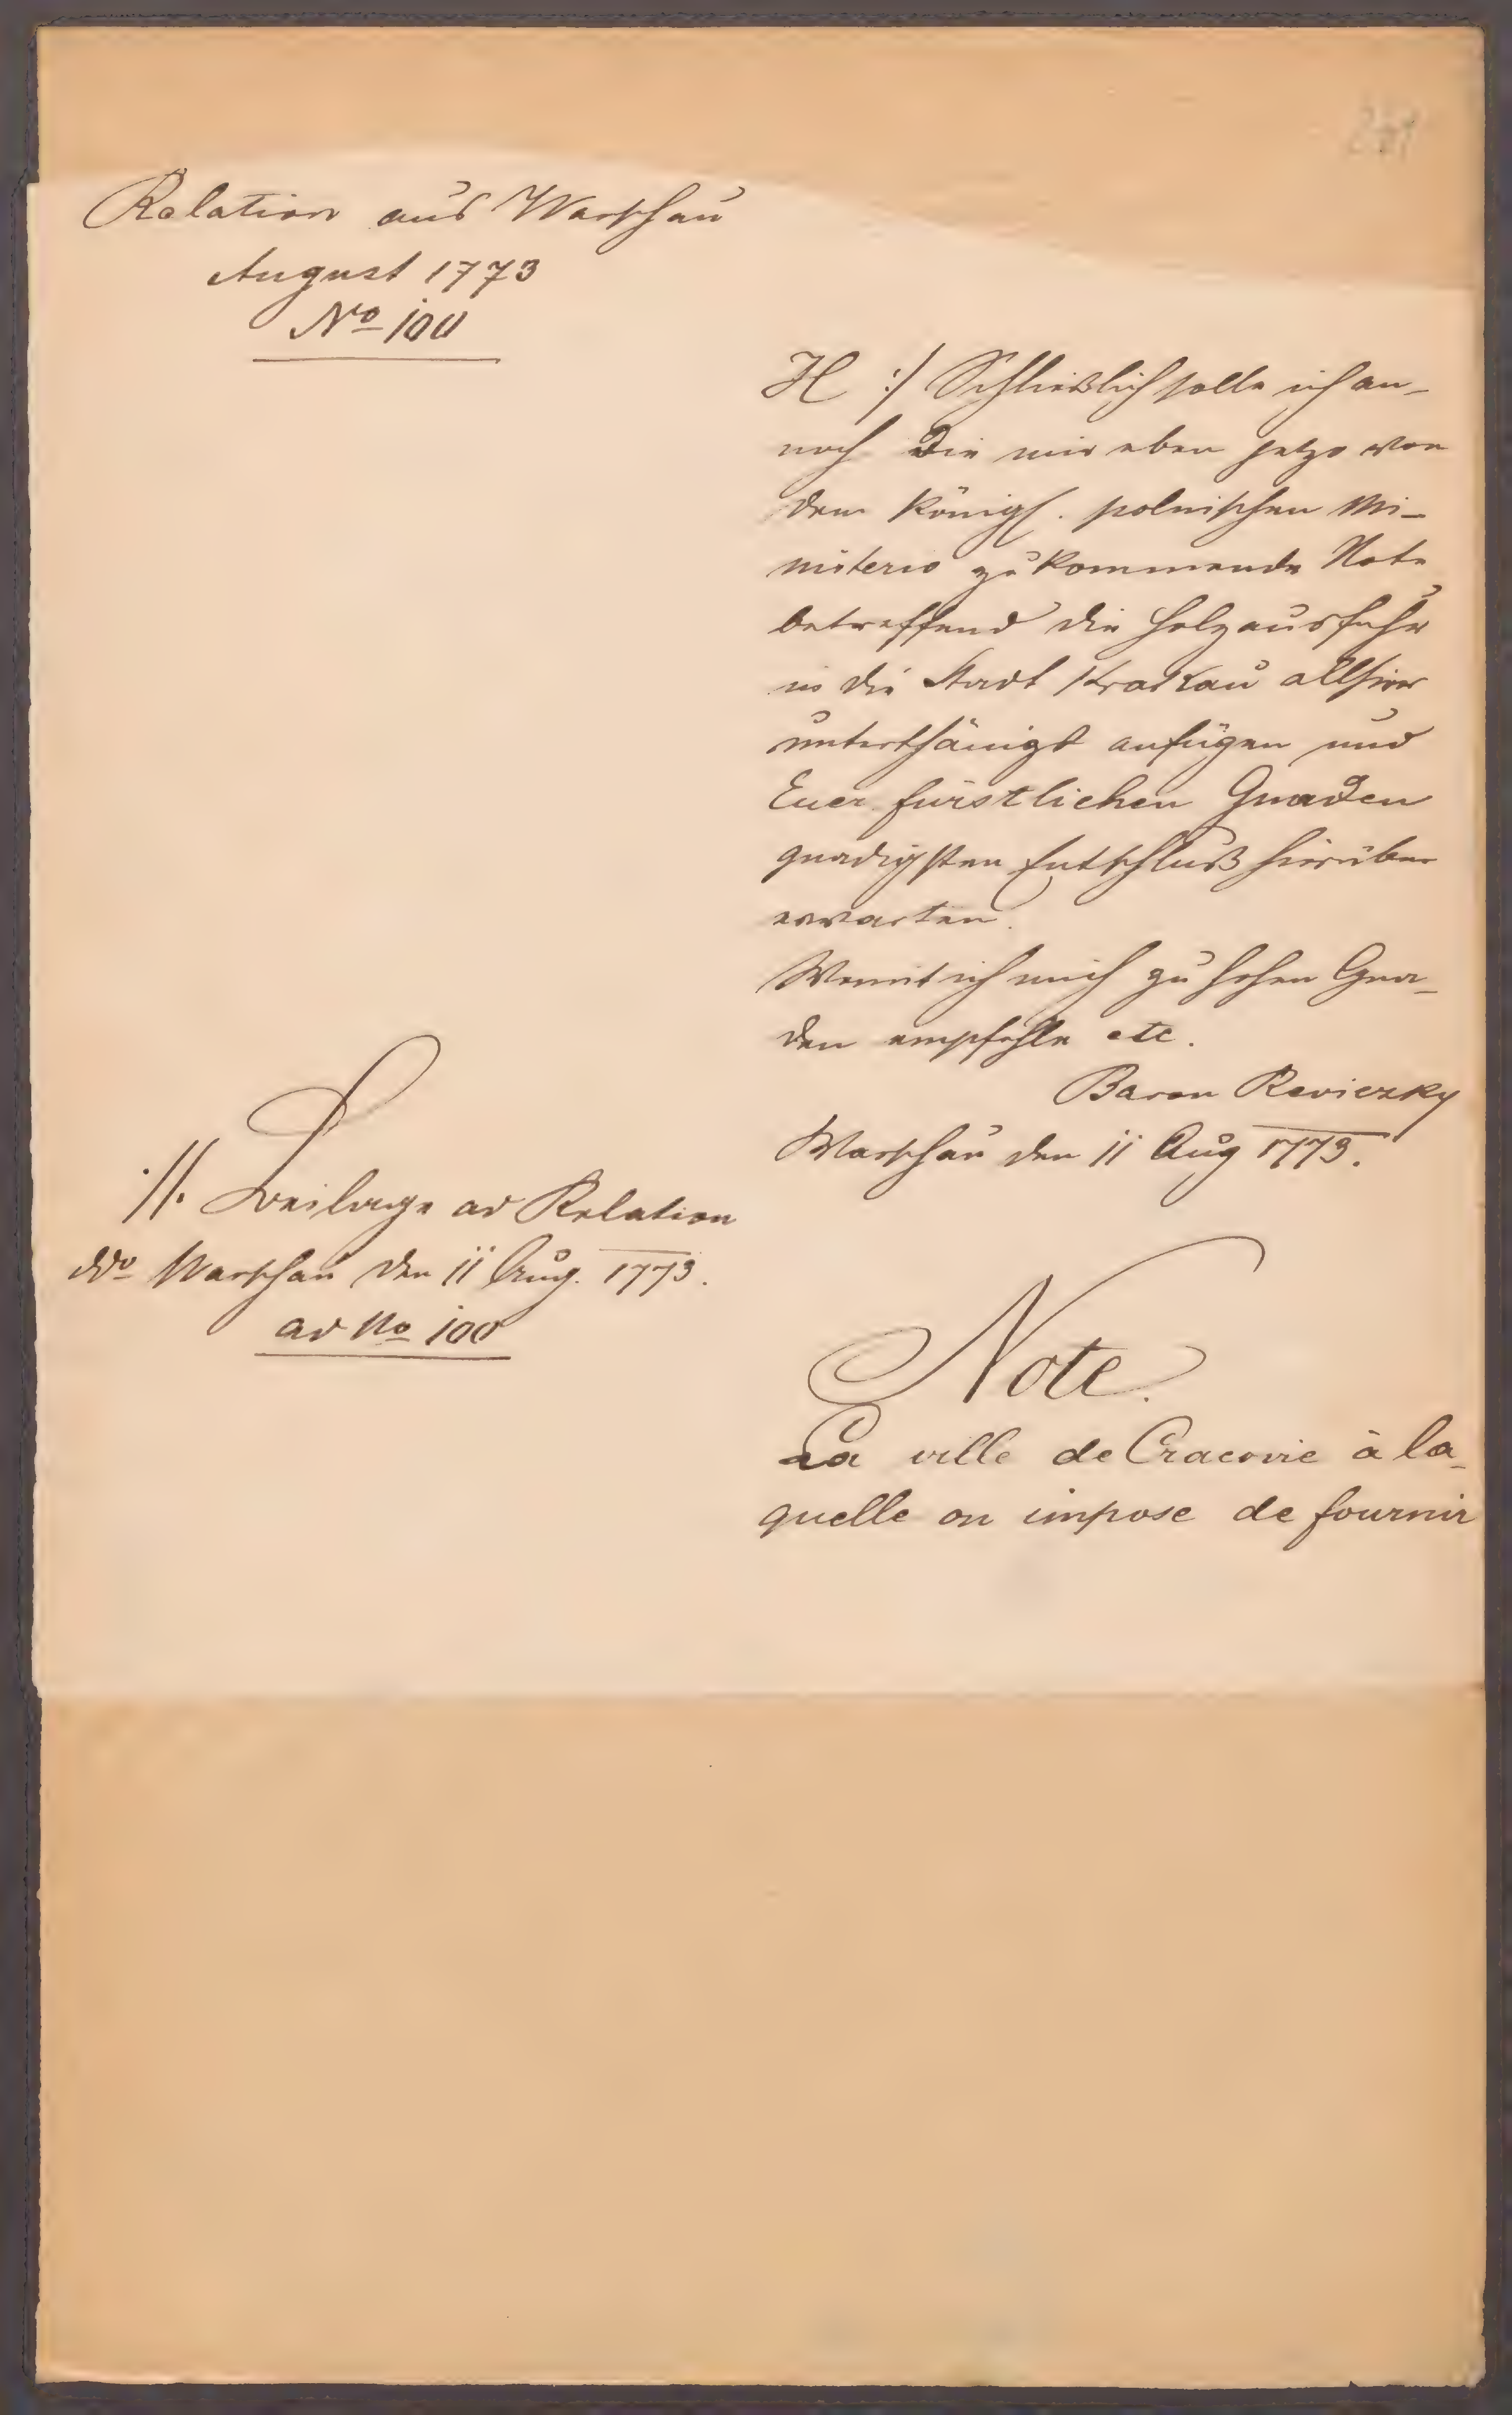 Relation aus Warschau
August 1773
No 100
H :/ Schließlich solle ich an-
noch die mir eben jetzo von
dem königl. polnischen Mi-
nisterio zukommende Note
betreffend die Holzausfuhr
in die Stadt Krakau allhier
unterthänigst anfügen und
Euer fürstlichen Gnaden
gnädigsten Entschluß hierüber
erwarten.
Womit ich mich zu hohen Gna-
den empfehle etc.
Baron Reviczky
Warschau den 11 Aug 1773.
://. Beilage ad Relation
ddo Warschau den 11 Aug. 1773.
ad No 100
Note.
La ville de Cracovie à la-
quelle on impose de fournir